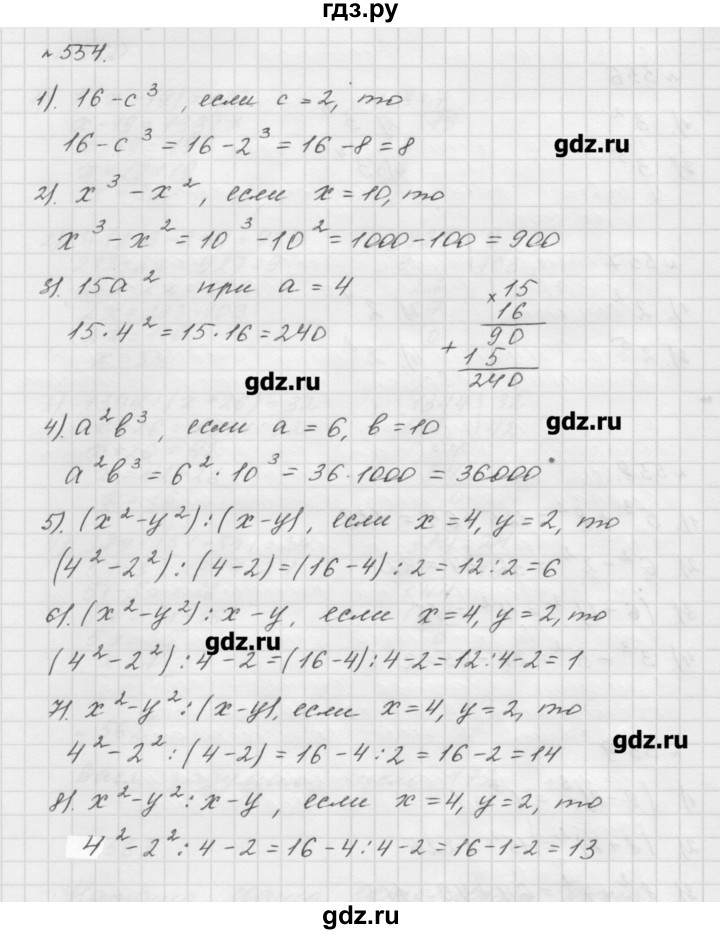 гдз.ру
№ 554.
1). 16 - c³, если c = 2, то
16 - c³ = 16 - 2³ = 16 - 8 = 8
gdz.ru
2). x³ - x², если x = 10, то
x³ - x² = 10³ - 10² = 1000 - 100 = 900
3). 15a² при a = 4
15 · 4² = 15 · 16 = 240
× 15
16
+ 90
15
240
gdz.ru
4). a²b³, если a = 6, b = 10
gdz.ru
a²b³ = 6² · 10³ = 36 · 1000 = 36000
5). (x² - y²) : (x - y), если x = 4, y = 2, то
(4² - 2²) : (4 - 2) = (16 - 4) : 2 = 12 : 2 = 6
6). (x² - y²) : x - y, если x = 4, y = 2, то
gdz.ru
(4² - 2²) : 4 - 2 = (16 - 4) : 4 - 2 = 12 : 4 - 2 = 1
7). x² - y² : (x - y), если x = 4, y = 2, то
gdz.ru
4² - 2² : (4 - 2) = 16 - 4 : 2 = 16 - 2 = 14
8). x² - y² : x - y, если x = 4, y = 2, то
4² - 2² : 4 - 2 = 16 - 4 : 4 - 2 = 16 - 1 - 2 = 13
gdz.ru